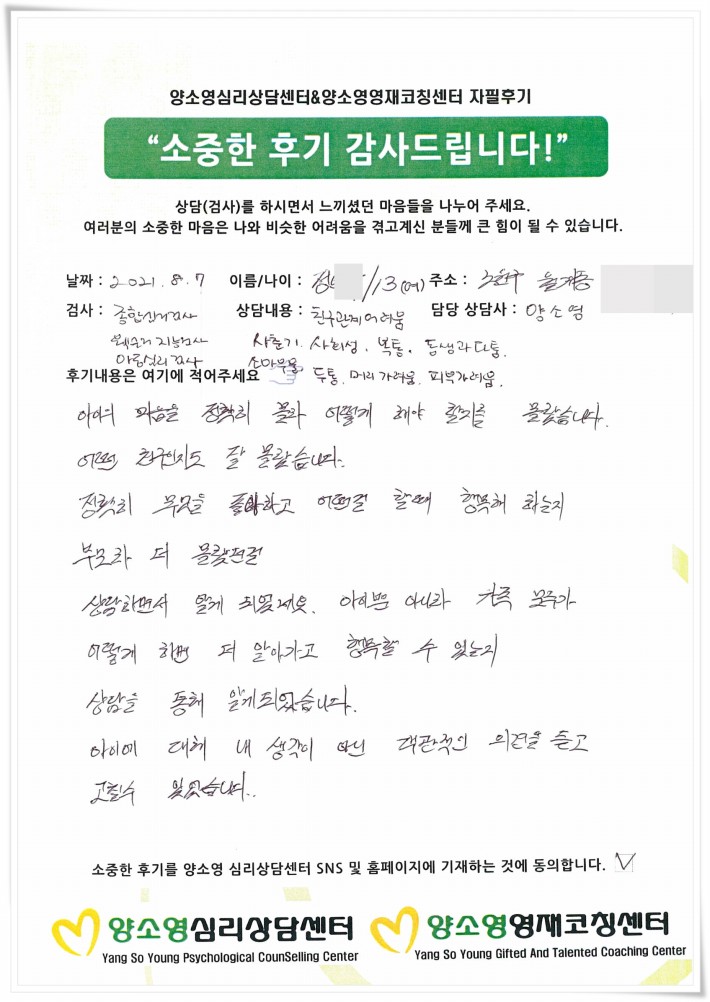 양소영심리상담센터&양소영영재코칭센터 자필후기
"소중한 후기 감사드립니다!"
상담(검사)를 하시면서 느끼셨던 마음들을 나누어 주세요.
여러분의 소중한 마음은 나와 비슷한 어려움을 겪고계신 분들께 큰 힘이 될 수 있습니다.
날짜 : 2021. 8. 7 이름/나이 : /13(여) 주소 : 노원구 월계동
검사 : 종합심리검사 상담내용 : 친구관계어려움 담당 상담사 : 양소영
웩슬러 지능검사 사춘기. 사회성. 복통. 동생과다툼.
아동심리검사
후기내용은 여기에 적어주세요 두통. 머리 가려움. 피부가려움.
아이의 마음을 정확히 몰라 어떻게 해야 할지를 몰랐습니다.
어떤 친구인지도 잘 몰랐습니다.
정확히 무엇을 좋아하고 어떤걸 할때 행복해 하는지
부모라 더 몰랐던걸
상담하면서 알게 되었네요. 아이뿐 아니라 가족 모두가
어떻게 하면 더 알아가고 행복할 수 있는지
상담을 통해 알게되었습니다.
아이에 대해 내 생각이 아닌 객관적인 의견을 듣고
고칠수 있었습니다..
소중한 후기를 양소영 심리상담센터 SNS 및 홈페이지에 기재하는 것에 동의합니다.
양소영심리상담센터 양소영영재코칭센터
Yang So Young Psychological CounSelling Center Yang So Young Gifted And Talented Coaching Center